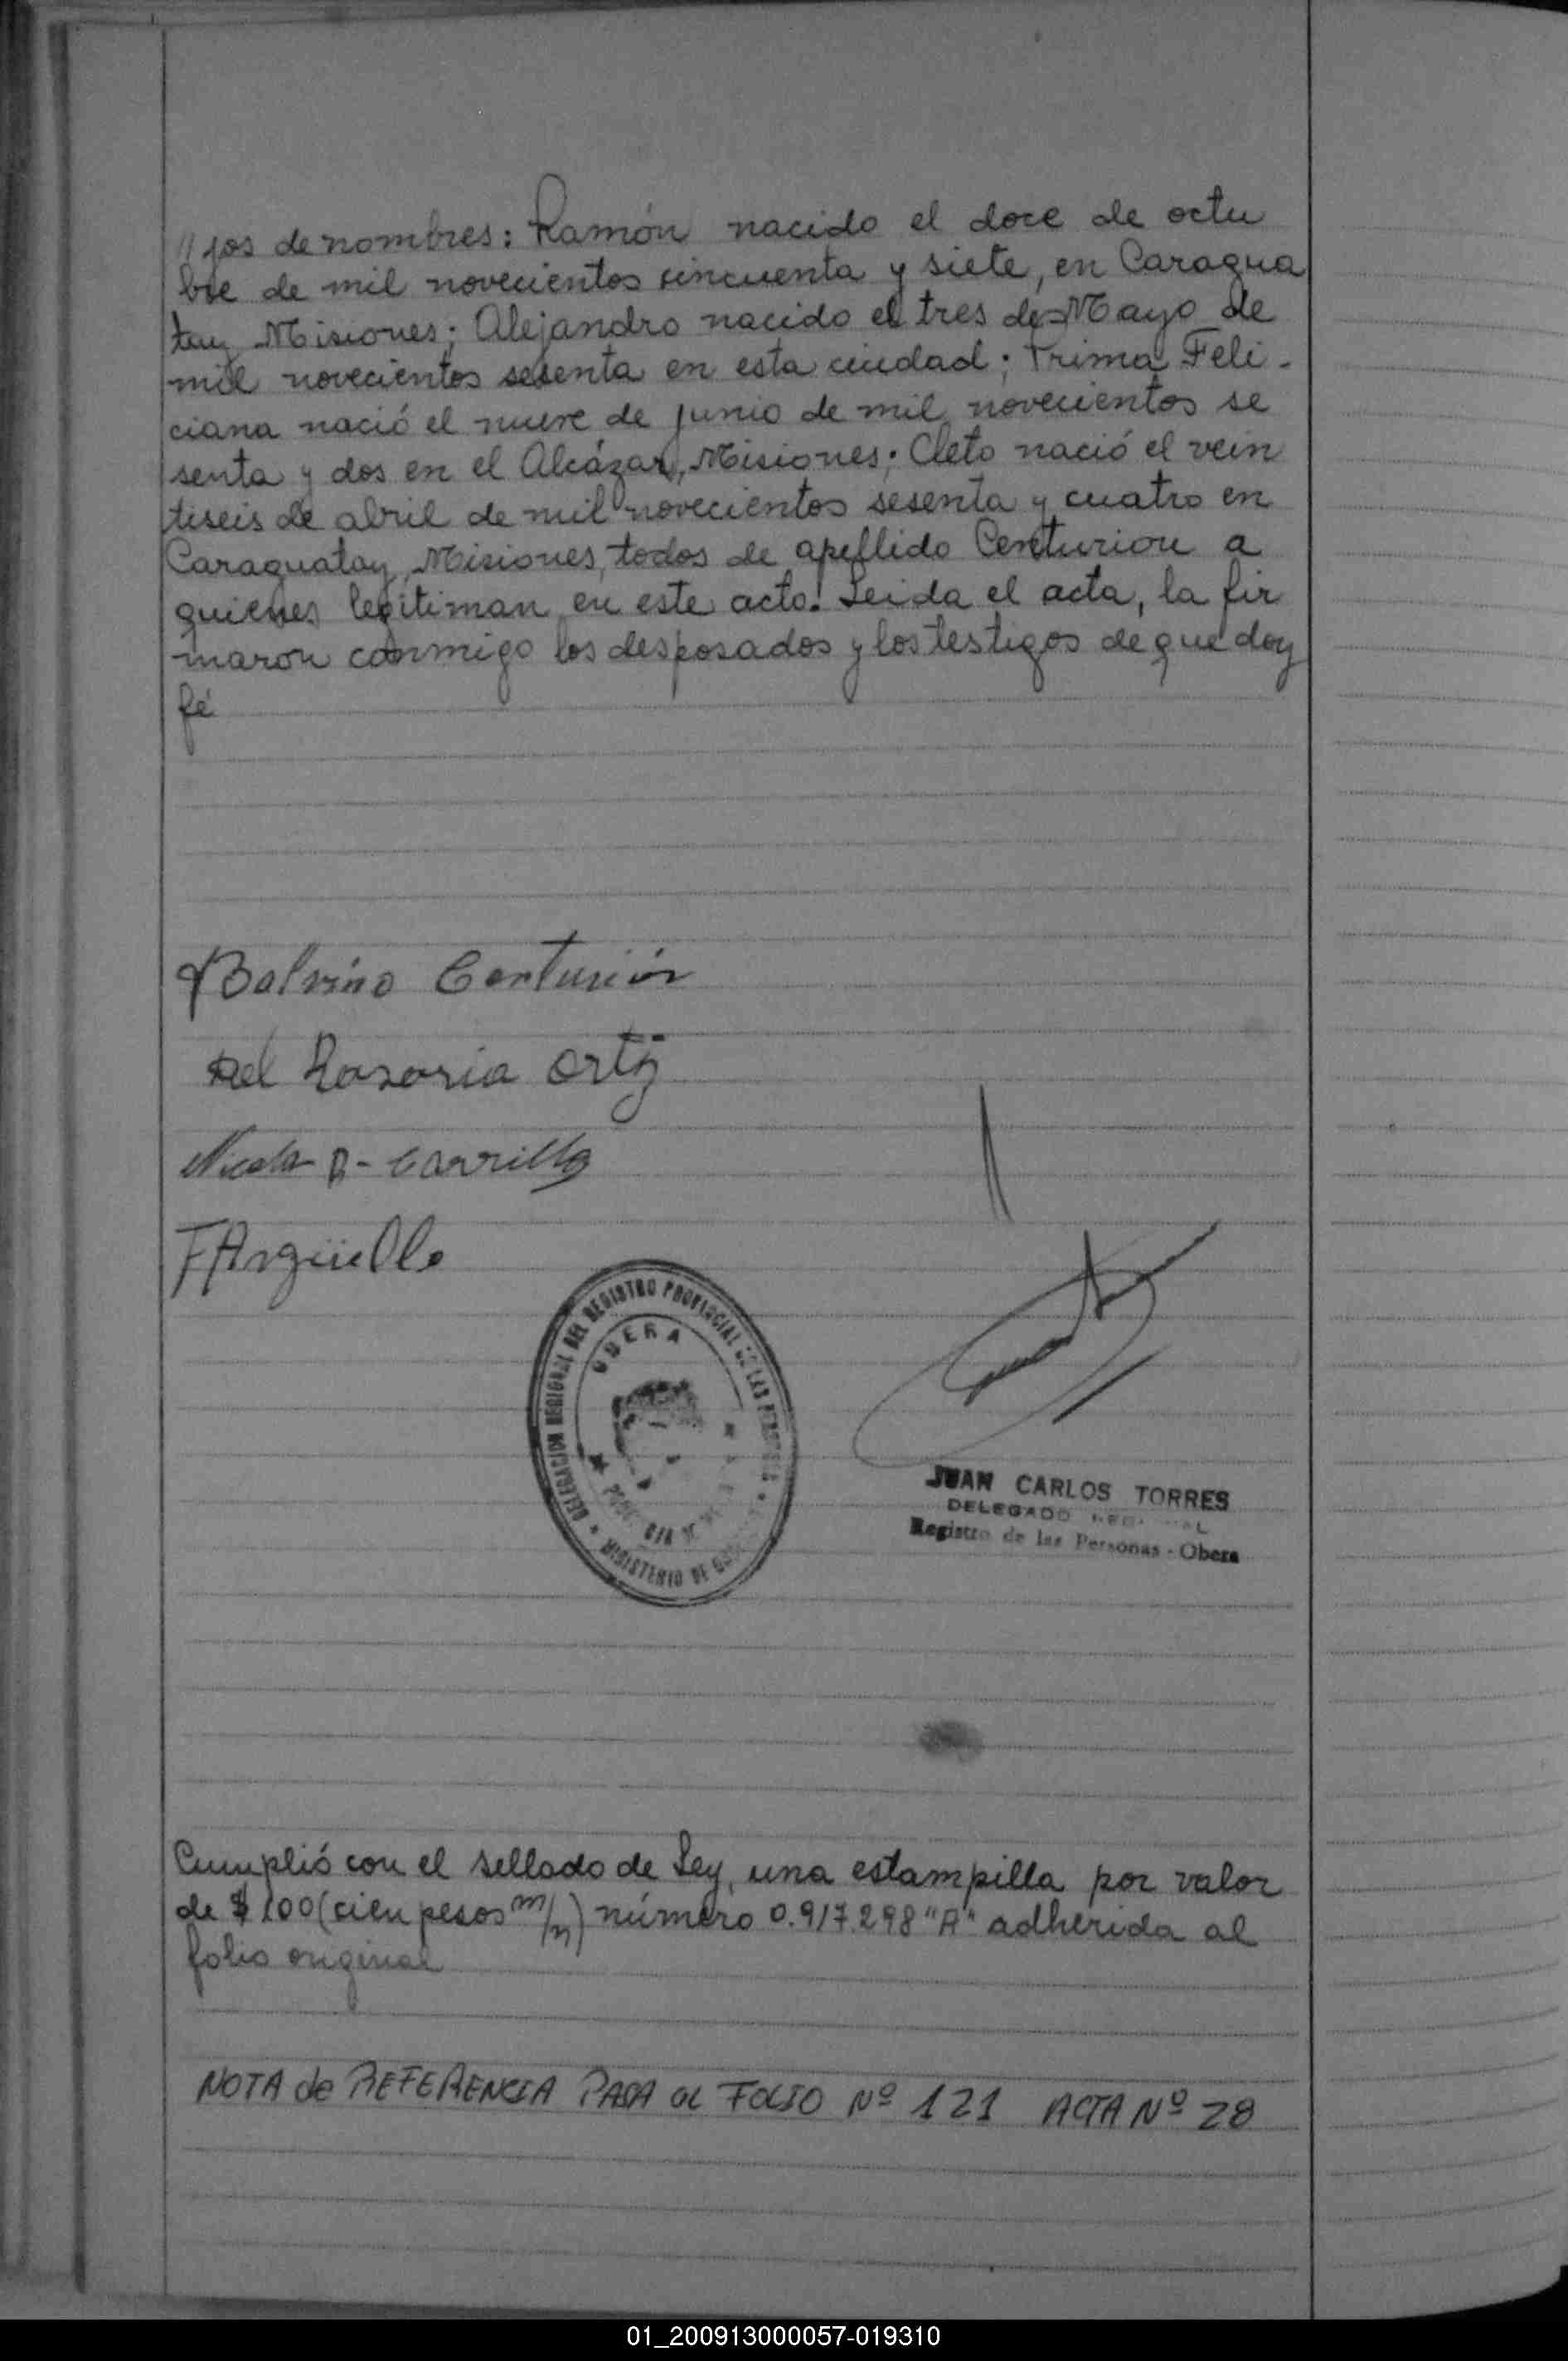 //jos de nombres: Ramón nacido el doce de octu
bre de mil novecientos cincuenta y siete, en Caragua
tay Misiones; Alejandro nacido el tres de Mayo de
mil novecientos sesenta en esta ciudad; Prima Feli-
ciana nació el nueve de junio de mil novecientos se
senta y dos en el Alcázar, Misiones; Cleto nació el vein
tiseis de abril de mil novecientos sesenta y cuatro en
Caraguatay, Misiones, todos de apellido Centurion a
quienes legitiman en este acto. Leida el acta, la fir
maron conmigo los desposados y los testigos de que doy
fé
Balvino Centurión
Del Rosaria Ortiz
R- Carrillo
F Argüello
DELEGACION REGIONAL DEL REGISTRO PROVINCIAL DE LAS
OBERA
MINISTERIO DE
JUAN CARLOS TORRES
DELEGADO
Registro de las Personas - Obera
Cumplió con el sellado de Ley, una estampilla por valor
de $ 100 (cien pesos m/n) número 0.917.298 "A" adherida al
folio original
NOTA de REFERENCIA PASA al FOLIO Nº 121 ACTA Nº 28
01_200913000057-019310